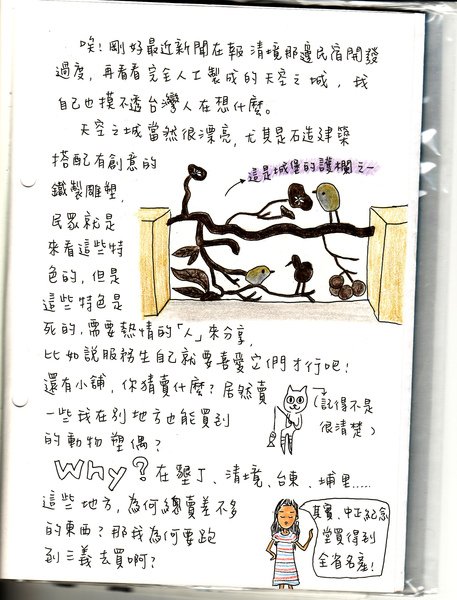 唉！剛好最近新聞在報清境那邊民宿開發
過度，再看看完全人工製成的天空之城，我
自己也摸不透台灣人在想什麼。
天空之城當然很漂亮，尤其是石造建築
搭配有創意的
鐵製雕塑，
這是城堡的護欄之一
民眾就是
來看這些特
色的，但是
這些特色是
死的，需要熱情的「人」來分享，
比如說服務生自己就要喜愛它們才行吧！
還有小舖，你猜賣什麼？居然賣
一些我在別地方也能買到
的動物塑偶？
(記得不是
很清楚)
Why？在墾丁、清境、台東、埔里.....
這些地方，為何總賣差不多
的東西？那我為何要跑
到三義去買啊？
其實，中正紀念
堂買得到
全省名產！